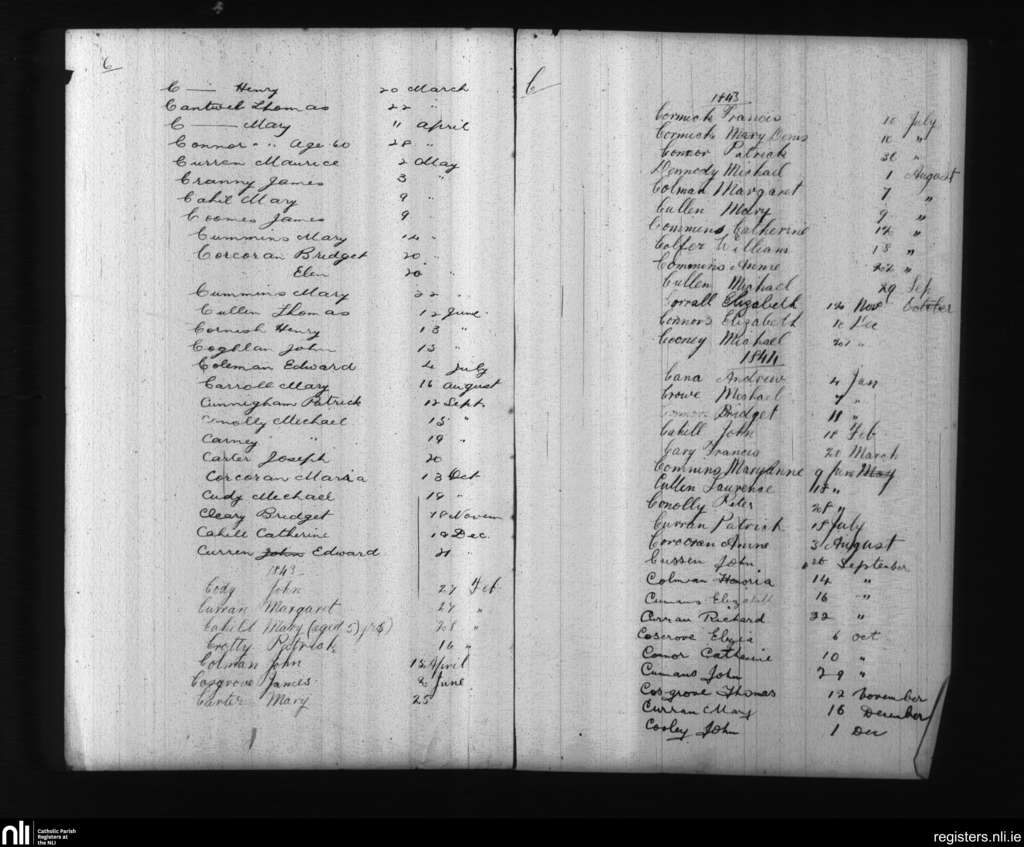 C
C —— Henry 20 March
Cantwell Thomas 22 "
C —— Mary " April
Connor " " Age 60 28 "
Curren Maurice 2 May
Cranny James 3 "
Cahil Mary 9 "
Coomes James 9
Cummins Mary 14 "
Corcoran Bridget 20 "
Elen 20 "
Cummins Mary 22 "
Cullen Thomas 12 June
Cornish Henry 13 "
Coghlan John 13 "
Coleman Edward 4 July
Carroll Mary 16 august
Cunnigham Patrick 12 Sept
Conolly Michael 15 "
Carney " 19 "
Carter Joseph 20
Corcoran Maria 13 Oct
Cudy Michael 19 "
Cleary Bridget 18 Novem
Cahill Catherine 12 Dec.
Curren John Edward 21 "
1843
Cody John 27 Feb
Curran Margaret 27 "
Cahill Mary (aged 5) 28 "
Crotty Patrick 16 "
Colman John 15 April
Cosgrove James 2 June
Carter Mary 25
C
1843
Cormick Francis 10 July
Cormick Mary 10 "
Connor Patrick 30 "
Kennedy Michael 1 August
Colman Margaret 7 "
Cullen Mary 9 "
Commins Catherine 12 "
Colfer William 13 "
Commins Anne "
Cullen Michael 29 Sep
Corrall Elizabeth 14 Nov October
Connors Elizabeth 10 Dec
Cooney Michael "
1844
Cana Andrew 4 Jan
Crowe Michael 7 "
Connor Bridget 11 "
Cahill John 18 Feb
Cary Francis 20 March
Comming Mary Anne 9 June May
Cullen Laurence 18 "
Conolly Peter 28 "
Curran Patrick 18 July
Corocran Anne 3 August
Cussen John 20 September
Colman Honoria 14 "
Cumans Elizabeth 16 "
Curran Richard 22 "
Cosgrove Elyia 6 oct
Connor Catherine 10 "
Cumans John 29 "
Cosgrove Thomas 12 November
Curran Mary 16 December
Cooley John 1 Dec
nli
Catholic Parish
Registers at
the NLI
registers.nli.ie